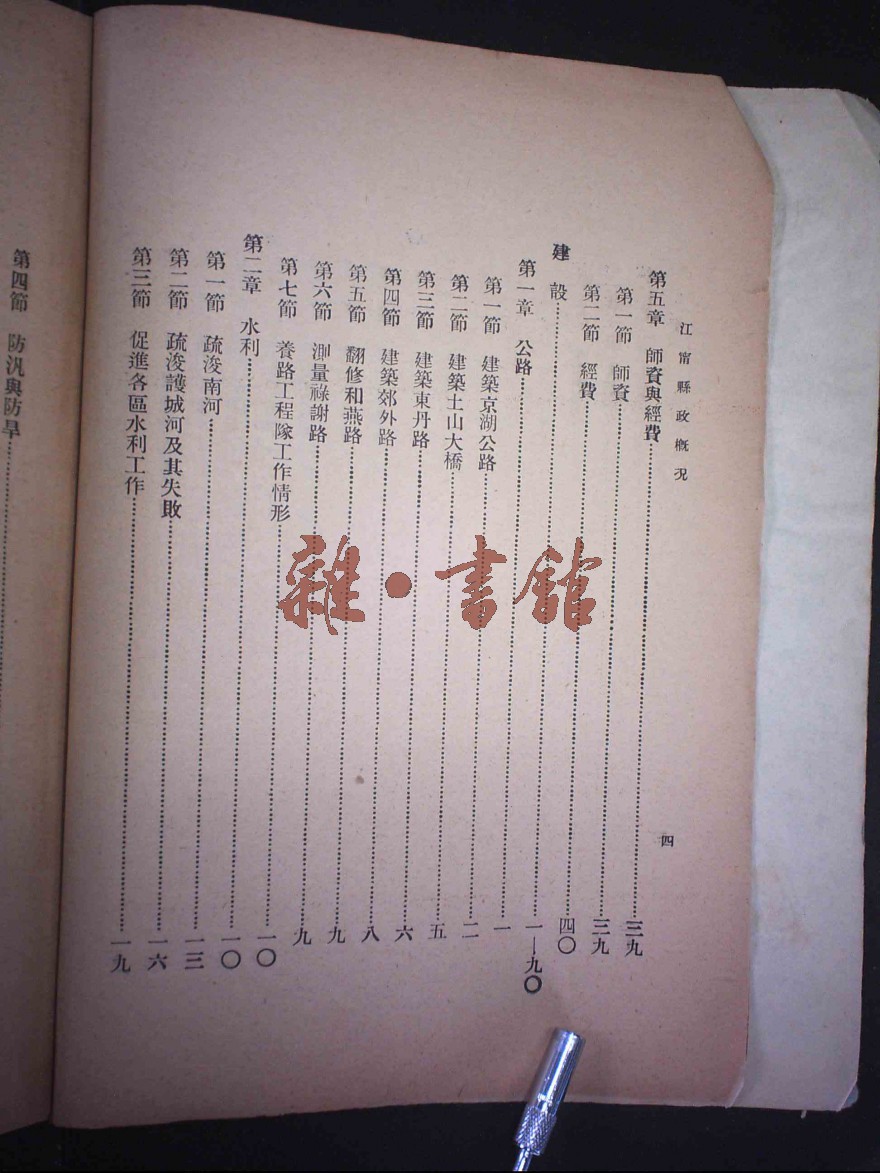 江甯縣政概況
四
第五章 師資與經費……三九
第一節 師資……三九
第二節 經費……四〇
建設……一—九〇
第一章 公路……一
第一節 建築京湖公路……二
第二節 建築土山大橋……五
第三節 建築東丹路……六
第四節 建築郊外路……八
第五節 翻修和燕路……九
第六節 測量祿謝路……九
第七節 養路工程隊工作情形……一〇
第二章 水利……一〇
第一節 疏浚南河……一三
第二節 疏浚護城河及其失敗……一六
第三節 促進各區水利工作……一九
第四節 防汎與防旱……
雜·書館